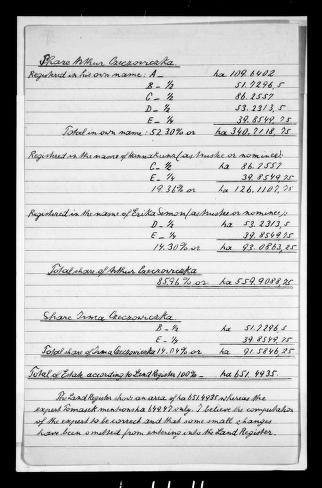 Share Arthur Czeczowiczka
Registered in his own name: A — ha 109.6402
B — 1/2 51.7296,5
C — 1/2 86.2557
D — 1/2 53.2313,5
E — 1/4 39.8549,75
Total in own name: 52.30% or ha 340.7118,75
Registered in the name of Hanna Kunz (as trustee or nominee):
C — 1/2 ha 86.2557
E — 1/4 39.8549,75
19.36% or ha 126.1107,75
Registered in the name of Erika Simon (as trustee or nominee):
D — 1/2 ha 53.2313,5
E — 1/4 39.8549,75
14.30% or ha 93.0863,25
Total share of Arthur Czeczowiczka
85.96% or ha 559.9088,75
Share Irma Czeczowiczka
B — 1/2 ha 51.7296,5
E — 1/4 ha 39.8549,75
Total share of Irma Czeczowiczka 14.04% or ha 91.5846,25
Total of Estate according to Land Register 100% — ha 651.4935.
The Land Register shows an area of ha 651.4935 whereas the
expert Tomasek mentions ha 649.47 only. I believe the computation
of the expert to be correct and that some small changes
have been omitted from entering into the Land Register.